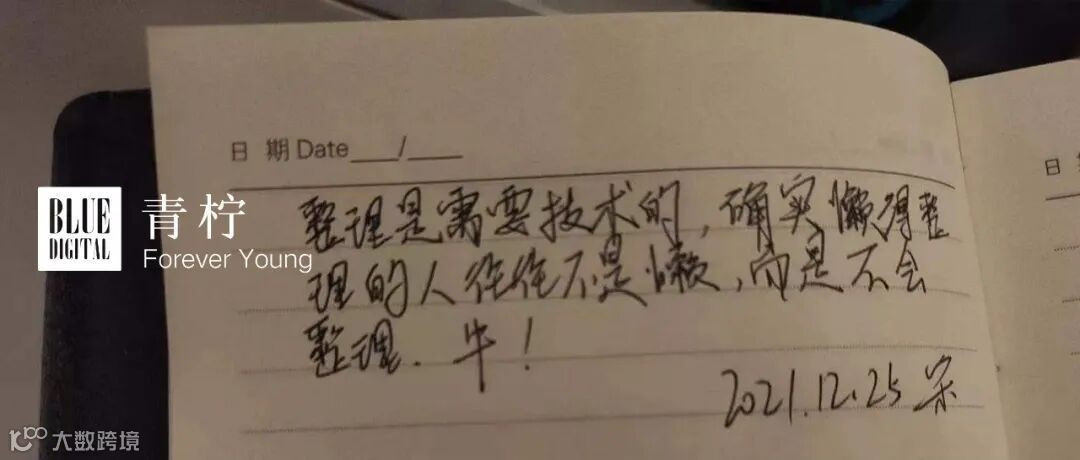 日 期 Date ___/___
日
BLUE
DIGITAL
青柠
Forever Young
整理是需要技术的，确实懒得整
理的人往往不是懒，而是不会
整理. 牛！
2021.12.25 宋
大数跨境